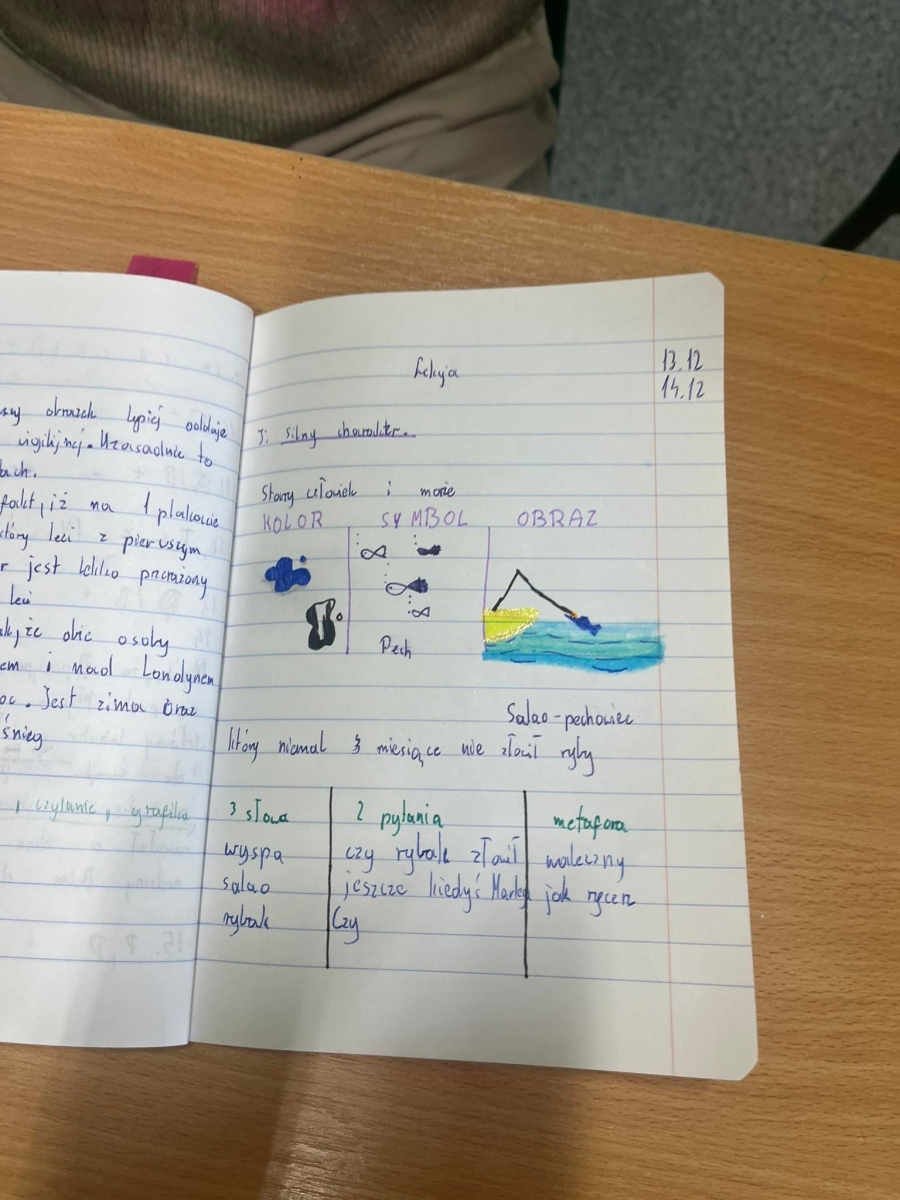 obrazek lepiej oddaje
wigilijnej. Uzasadnic to
fakt, iż na 1 plakacie
który leci z pierwszym
jest lekko przerażony
leci
że obie osoby
i nad Londynem
Jest zima oraz
śnieg
, czytanie, grafika
Lekcja
13.12
14.12
T: silny charakter.
Stary człowiek i morze
KOLOR SYMBOL OBRAZ
Pech
Salao-pechowiec
który niemal 3 miesiące nie złowił ryby
3 słowa 2 pytania metafora
wyspa czy rybak złowił waleczny
salao jeszcze kiedyś jak rycerz
rybak Czy